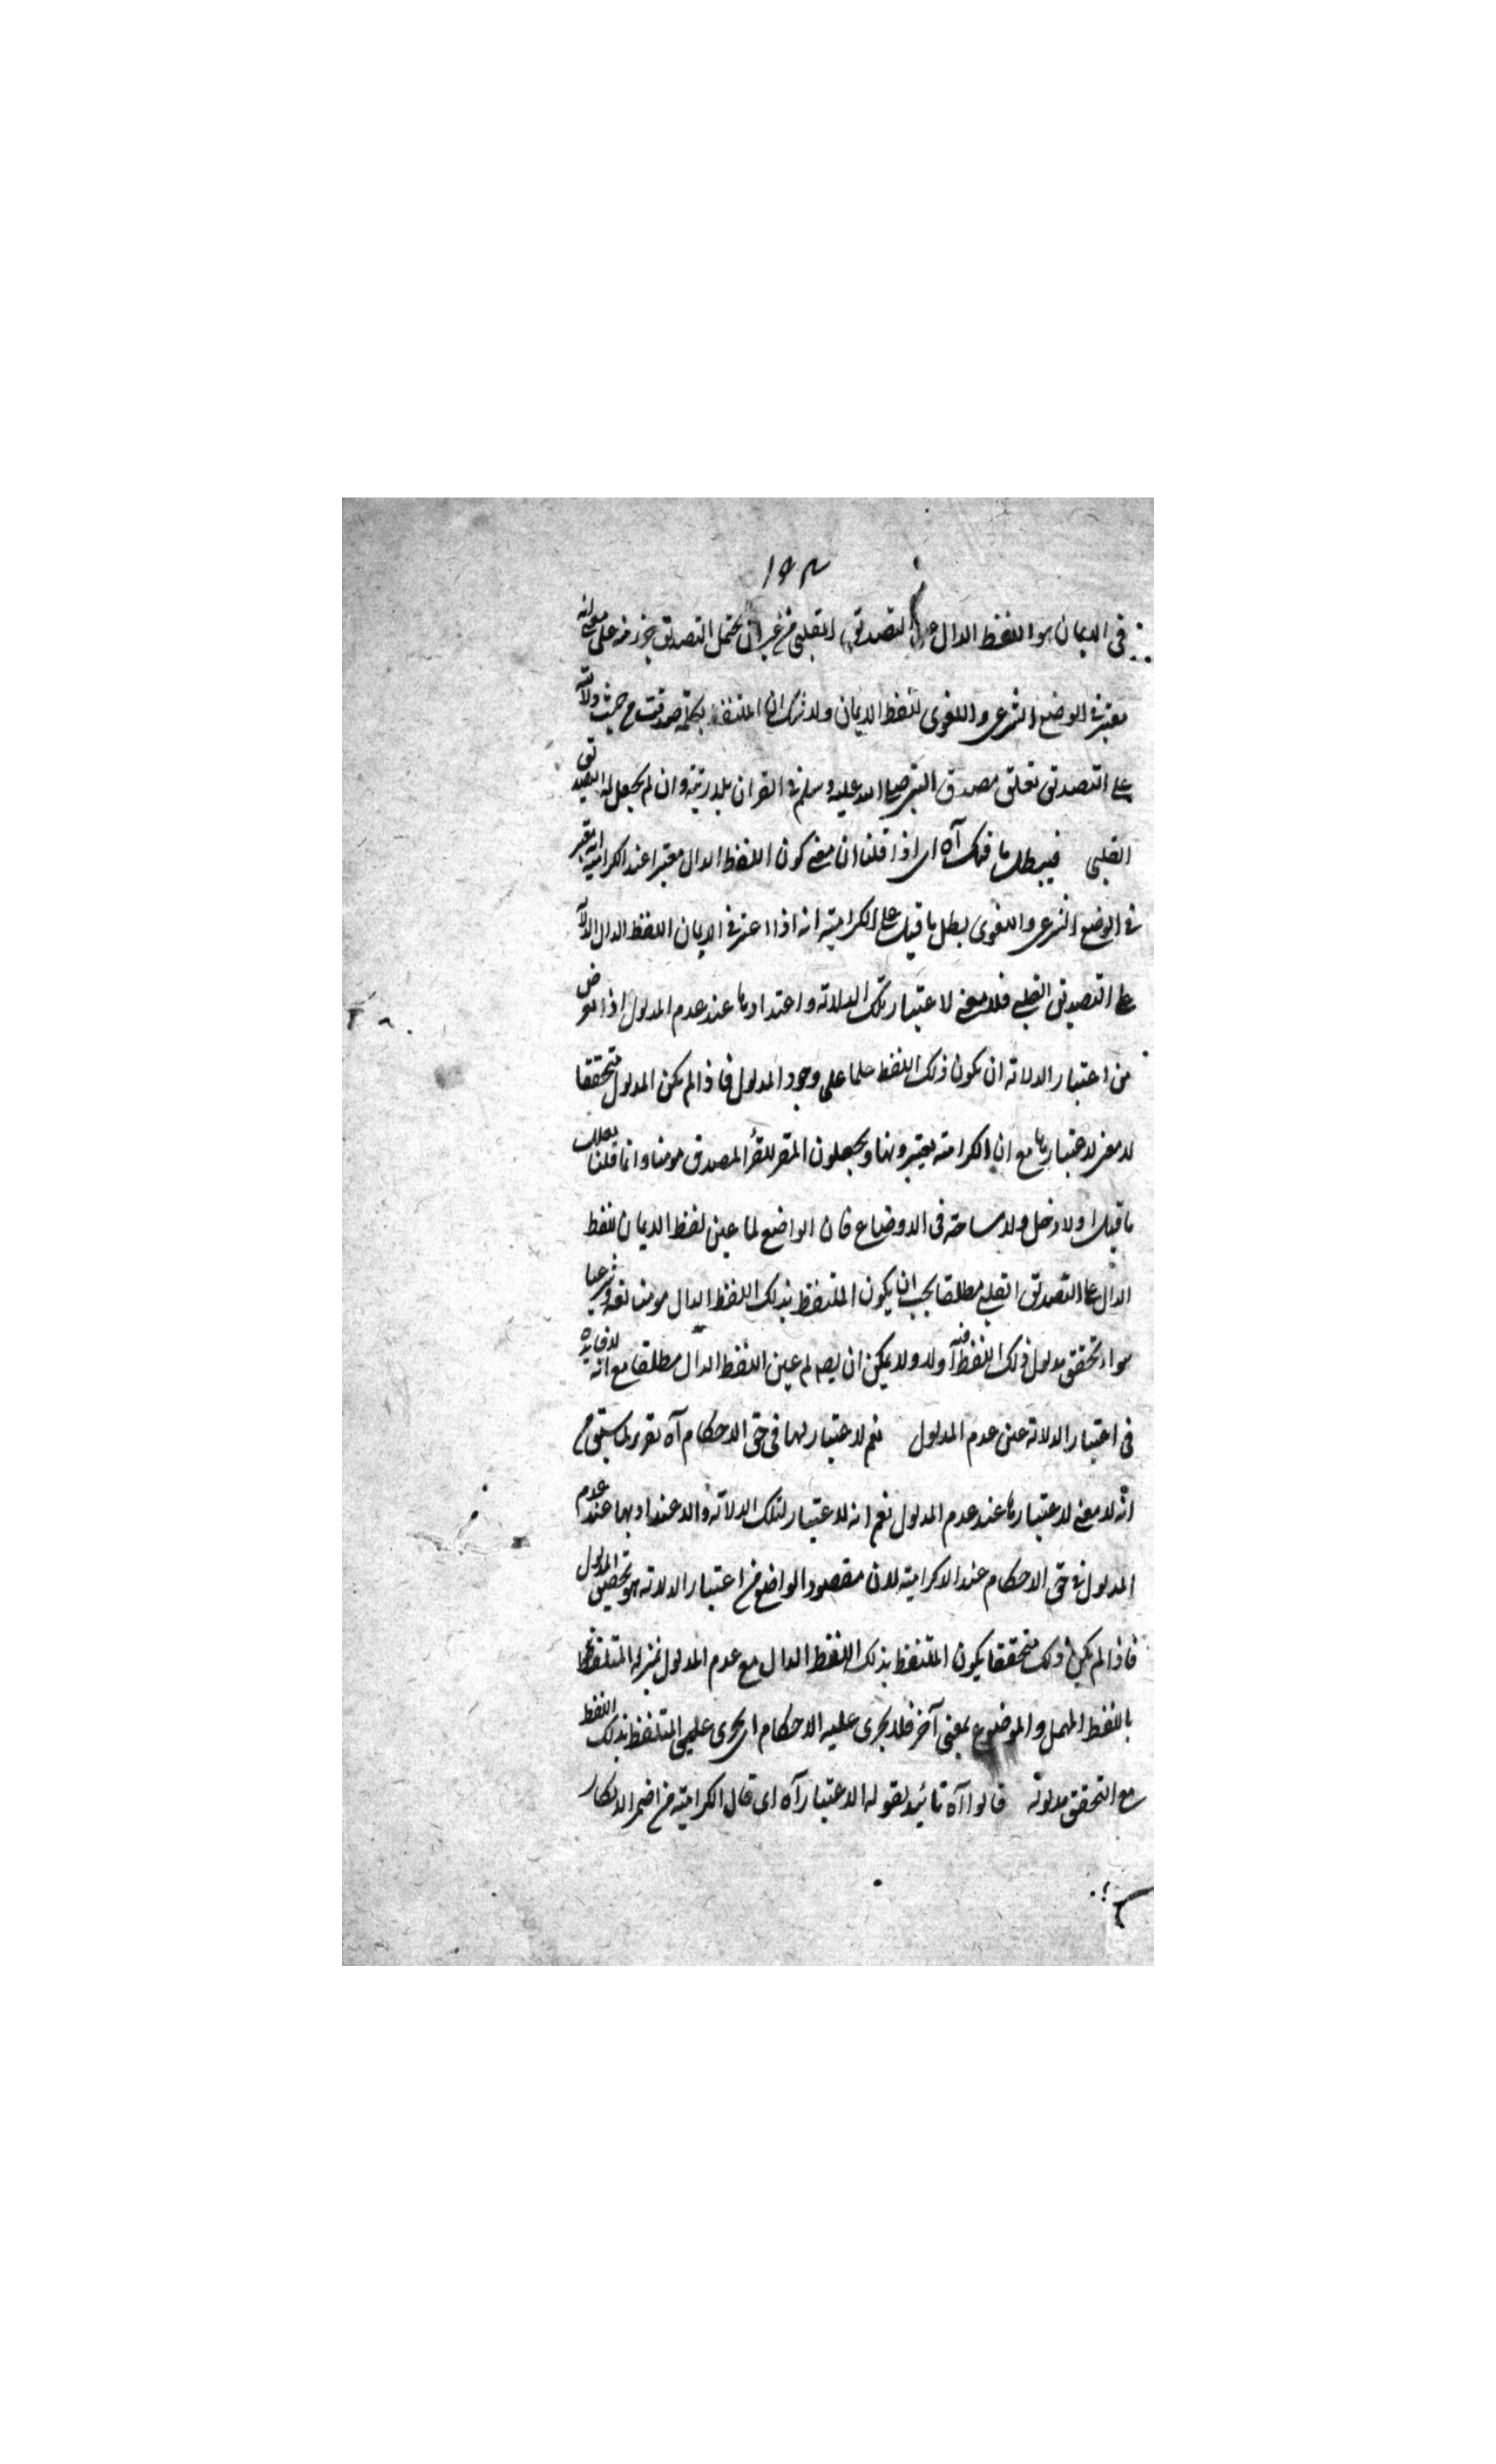 ١٩٣
فى الايمان هو اللفظ الدال على التصديق القلبى من غير ان يحتمل التصديق على معنى انه
معتبر فى الوضع الشرعى واللغوى للفظ الايمان ولا شك ان المتلفظ بكلمة صدقت من حيث دلالته
على التصديق مصدق النبى صلى الله عليه وسلم فى وان لم يجعل له التصديق
القلبى فيبطل ما قيل آه اى اذا قلنا ان معنى كون اللفظ الدال معتبرا عند الكرامية انه يعتبر
فى الوضع الشرعى واللغوى بطل ما قيل على الكرامية انه اذا اعتبر فى الايمان اللفظ الدال
على التصديق القلبى فلا معنى لاعتبار تلك الدلالة واعتدادها عند عدم المدلول اذ الغرض
من اعتبار الدلالة ان يكون ذلك اللفظ علما على وجود المدلول فاذا لم يكن المدلول متحققا
لا معنى لاعتبارها مع ان الكرامية يعتبرونها ويجعلون المقر المصدق مومنا وانما قلنا ببطلان
ما قيل اولا دخل ولا مساحة فى الاوضاع فان الواضع لما عين لفظ الايمان للفظ
الدال على التصديق القلبى مطلقا يجب ان يكون المتلفظ بذلك اللفظ الدال مومنا لغة وشرعيا
سواء تحقق مدلول ذلك اللفظ فيه اولا ولا يمكن ان يقال لم عين اللفظ الدال مطلقا مع انه لا فايدة
فى اعتبار الدلالة حين عدم المدلول نعم لا اعتبار لها فى حق الاحكام آه تقرير لما سبق من
انه لا معنى لاعتبارها عند عدم المدلول نعم انه لا اعتبار لتلك الدلالة والاعتداد بها عند عدم
المدلول فى حق الاحكام عند الكرامية لان مقصود الواضع من اعتبار الدلالة هو تحقيق المدلول
فاذا لم يكن ذلك متحققا يكون المتلفظ بذلك اللفظ الدال مع عدم المدلول بمنزلة المتلفظ
باللفظ المهمل والموضوع بمعنى آخر فلا يجرى عليه الاحكام اى يجرى على المتلفظ بذلك اللفظ
مع التحقق مدلوله قالوا آه تائيد لقوله لا اعتبار آه اى قال الكرامية من اضمر الانكار